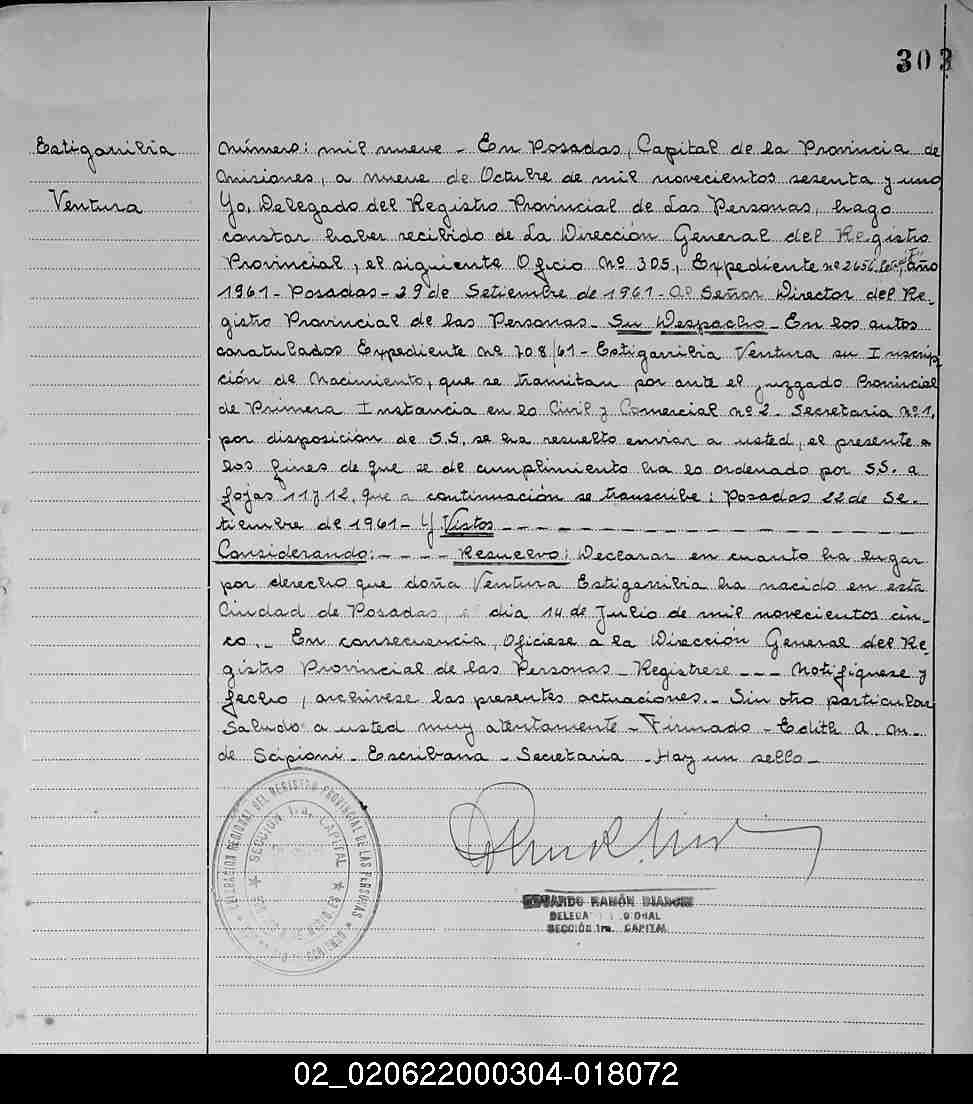 303
Estigarribia
Ventura
Número: mil nueve - En Posadas, Capital de la Provincia de
Misiones, a nueve de Octubre de mil novecientos sesenta y uno
Yo, Delegado del Registro Provincial de Las Personas, hago
constar haber recibido de La Dirección General del Registro
Provincial, el siguiente Oficio Nº 305, Expediente nº 2656 año
1961 - Posadas - 29 de Setiembre de 1961 - Al Señor Director del Re-
gistro Provincial de las Personas - Su Despacho - En los autos
caratulados Expediente nº 708/61 - Estigarribia Ventura su Inscrip
ción de Nacimiento, que se tramitan por ante el juzgado Provincial
de Primera Instancia en lo Civil y Comercial nº 2. Secretaria nº 1,
por disposición de S.S, se ha resuelto enviar a usted, el presente a
los fines de que se de cumplimiento ha lo ordenado por S.S. a
fojas 11 y 12, que a continuación se transcribe: Posadas 22 de Se-
tiembre de 1961 - Y Vistos
Considerando: - - - - Resuelvo: Declarar en cuanto ha lugar
por derecho que doña Ventura Estigarribia ha nacido en esta
Ciudad de Posadas, el dia 14 de Julio de mil novecientos cin-
co. - En consecuencia, Ofíciese a la Dirección General del Re-
gistro Provincial de las Personas - Regístrese - - - Notifíquese y
fecho, archívese las presentes actuaciones. - Sin otro particular
Saludo a usted muy atentamente - Firmado - Edith A. M.
de Scipioni - Escribana - Secretaria - Hay un sello -
DELEGACION REGIONAL DEL REGISTRO PROVINCIAL DE LAS PERSONAS
SECCION 1ra. CAPITAL
EDUARDO RAMÓN BIANCHI
DELEGADO REGIONAL
SECCIÓN 1ra. CAPITAL
02_020622000304-018072